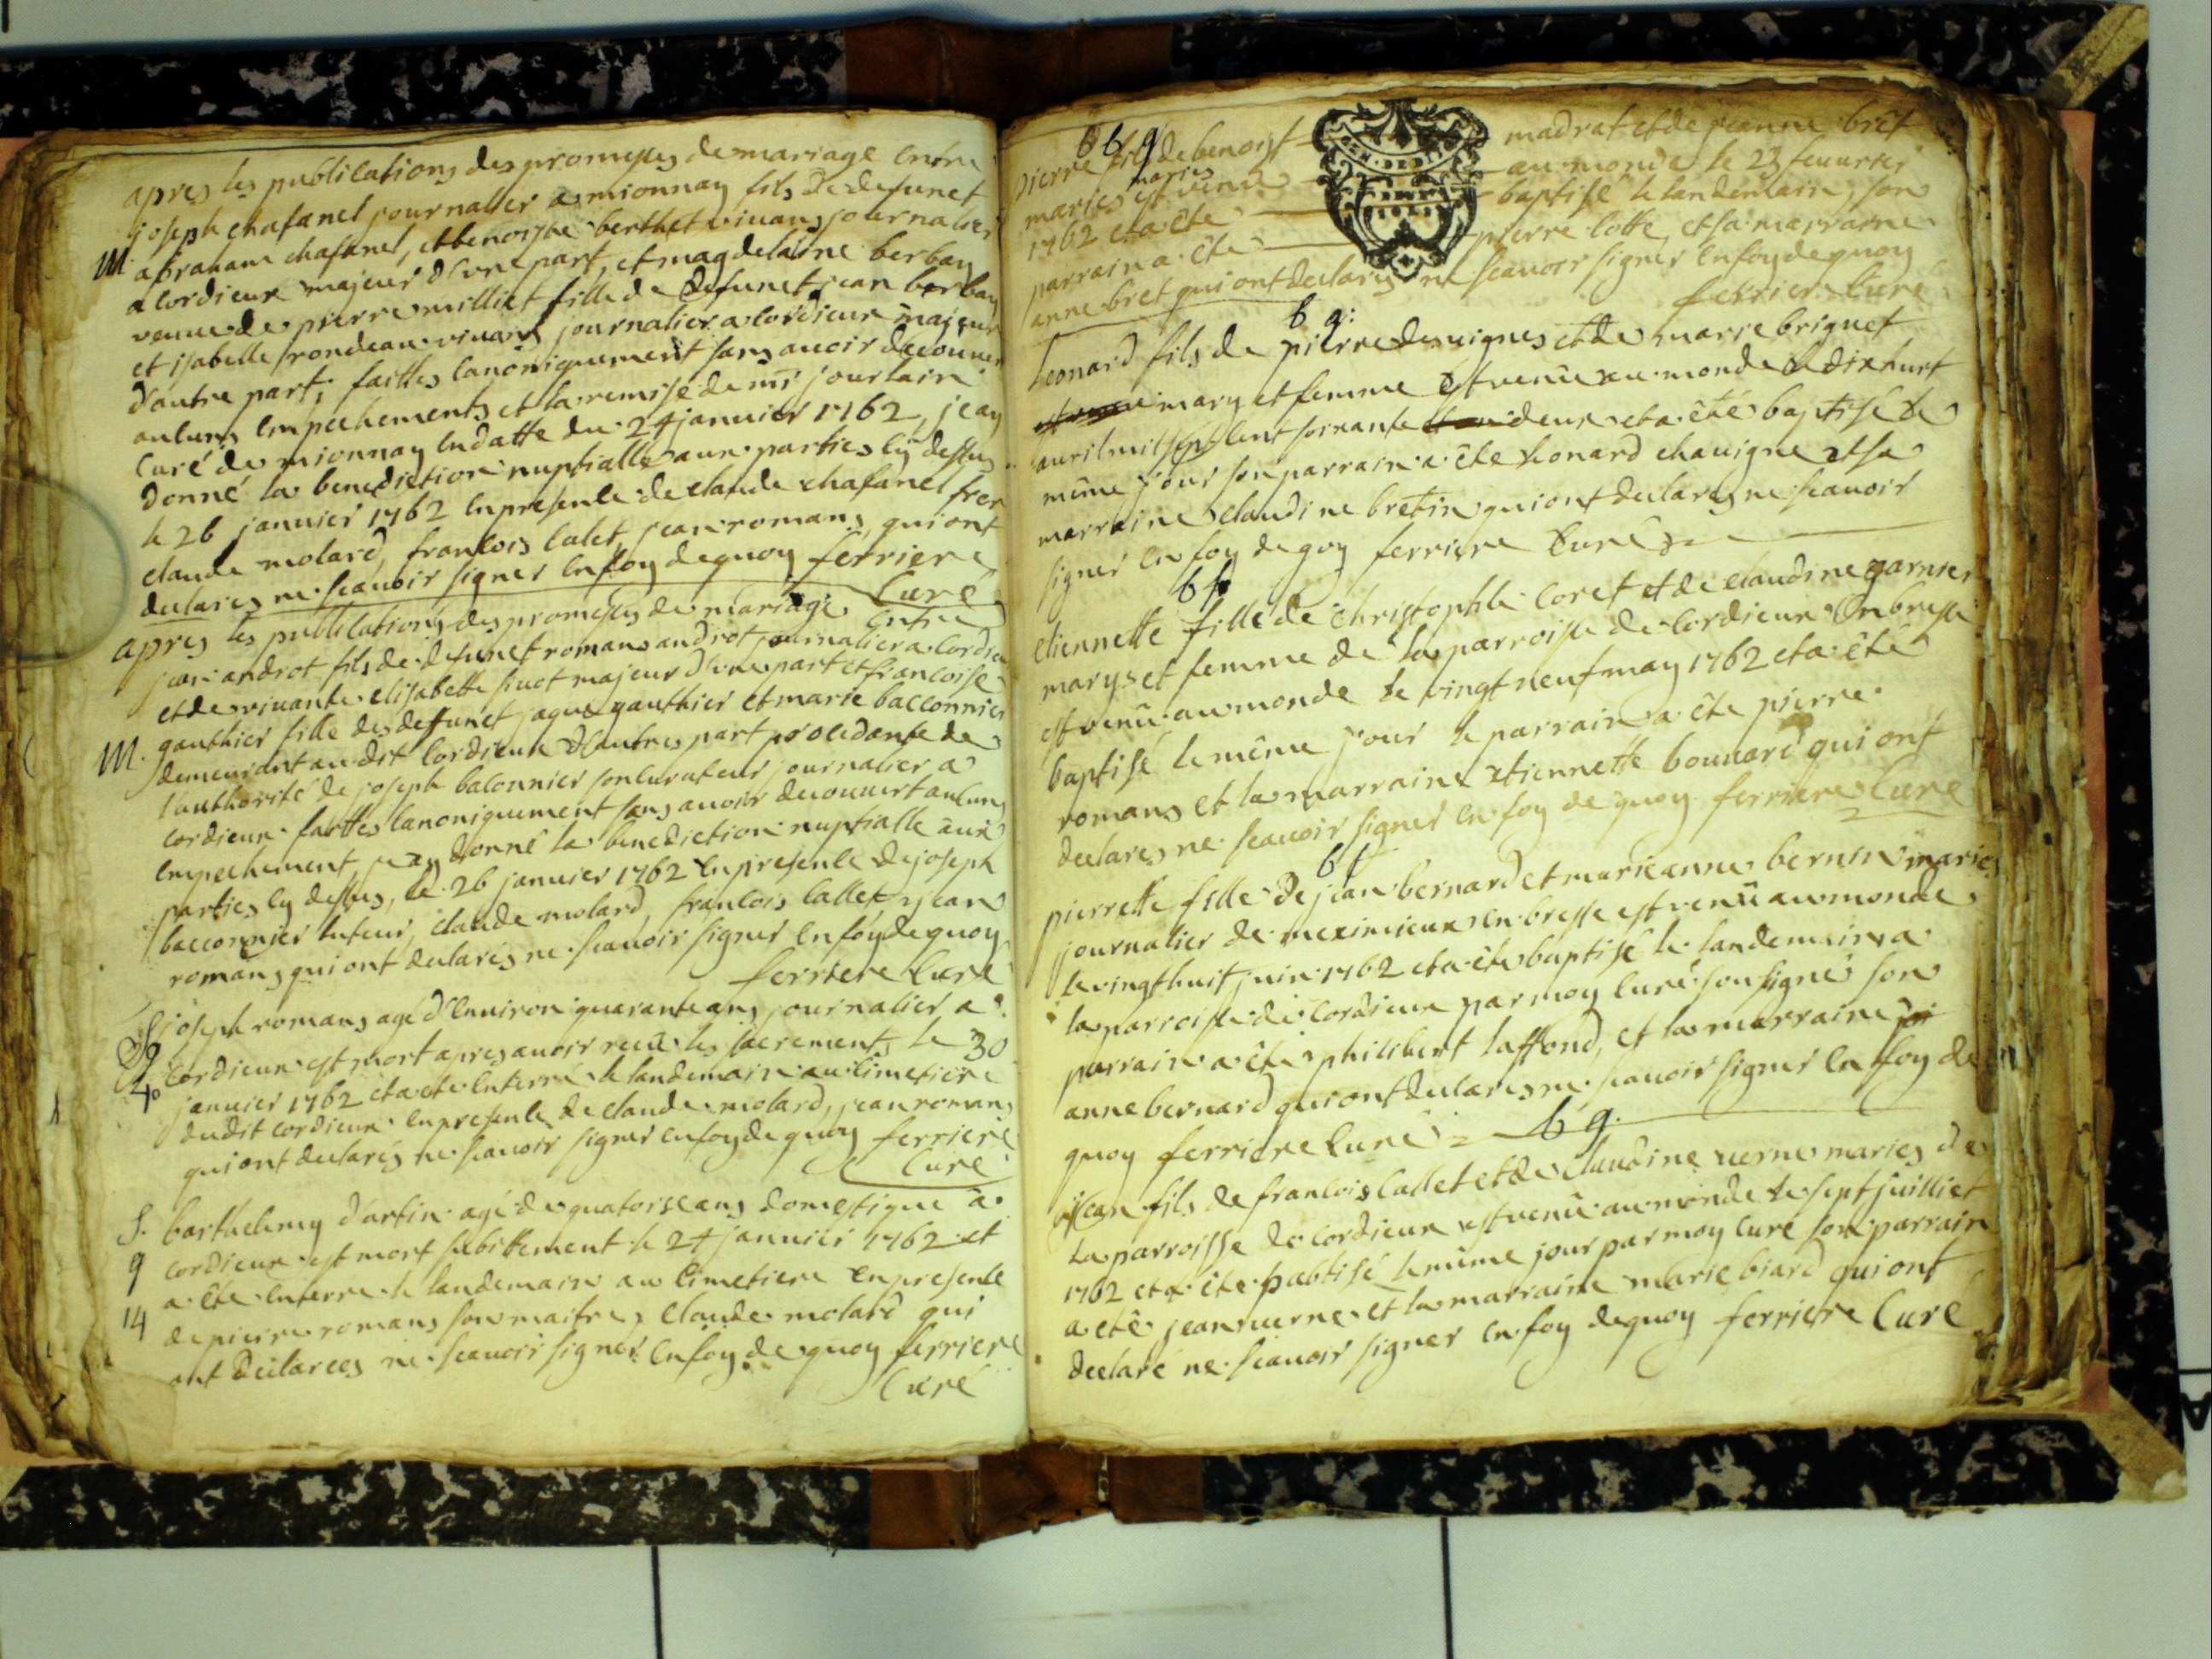 apres les publications des promesses de mariage entre
joseph chafanel journalier a mionnay fils de defunct
M. abraham chafanel, et benoiste berthet vivans journalier
a cordieux majeur d'une part, et magdelaine berbay
veuve de pierre milliet fille de defunct jean berbay
et isabelle rondeau vivans journalier a cordieux majeur
d'autre part, faittes canoniquement sans avoir decouvert
aucuns empechements et la remise de mr jourlain
curé de mionnay en datte du 24 janvier 1762, jean
donné la benediction nuptialle aux parties cy dessus
le 26 janvier 1762 en presence de claude chafanel frer
claude molard, francois calet, jean romans, qui ont
declares ne scavoir signer en foy de quoy ferriere
Curé
apres les publications des promesses de mariage entre
jean androt fils de defunct romans androt journalier a cordieu
et de vivante elisabette majeur d'une part et francoise
M. gauthier fille des deffunct jaque gauthier et marie bacconnier
demeurant au dit cordieux d'autres part procedante de
l'authorité de joseph baconnier son curateur journalier a
cordieux faittes canoniquement sans avoir decouvert aucuns
empechement, jean donné la benediction nuptialle aux
parties cy dessus, le 26 janvier 1762 en presence de joseph
bacconnier tuteur, claude molard, francois callet, jean
romans qui ont declares ne scavoir signer en foy de quoy
ferriere Curé
S joseph romans age d'environ quarante ans journalier a
9 cordieux est mort apres avoir recu les sacrements le 30
40 janvier 1762 et a ete enterré le landemain au cimetiere
dudit cordieux en presence de claude molard, jean romans
qui ont declarés ne scavoir signer en foy de quoy ferriere
Curé
S. barthelemy dartin agé de quatorse ans domestique a
9 cordieux est mort subittement le 24 janvier 1762 et
a ete enterre le landemain au cimetiere en presence
14 de pierre romans son maitre, claude molard qui
ont declarees ne scavoir signer en foy de quoy ferriere
Curé
b g
pierre fils de benoist madrat et de jeanne bret
maries
mariés est venu au monde le 23 fevurier
1762 et a ête baptisé le landemain, son
parrain a ête pierre cotte, et sa marraine
anne bret qui ont declares ne scavoir signer en foy de quoy
ferriere Curé
b g:
Leonard fils de pierre desvignes et de marie briquet
mary et femme est venu au monde le dixhuit
avril mil sept cent soixante deux et a êté baptisé le
même jour son parrain a ête leonard chavigne et sa
marraine claudine bretin qui ont declares ne scavoir
signer en foy de quoy ferriere Curé
b f
etiennette fille de christophle coret et de claudine garnier
marys et femme de la parroisse de cordieux en bresse
est venû au monde le vingt neuf may 1762 et a êté
baptisé le même jour le parrain a ête pierre
romans et la marraine etiennette bouvard qui ont
declares ne scavoir signer en foy de quoy ferriere Curé
b f
pierrette fille de jean bernard et marie anne bernin maries
journalier de meximieux en bresse est venû au monde
le vingt huit juin 1762 et a ête baptisé le landemain a
la parroisse de cordieux par moy curé sousigné son
parrain a êté philibert laffond, et la marraine
anne bernard qui ont declares ne scavoir signer en foy de
quoy ferriere Curé
b g.
jean fils de francois Callet et de claudine verne maries de
la parroisse de cordieux est venû au monde le sept juilliet
1762 et a ête babtisé le même jour par moy curé son parrain
a eté jean verne et la marraine marie biard qui ont
declaré ne scavoir signer en foy de quoy ferriere Curé